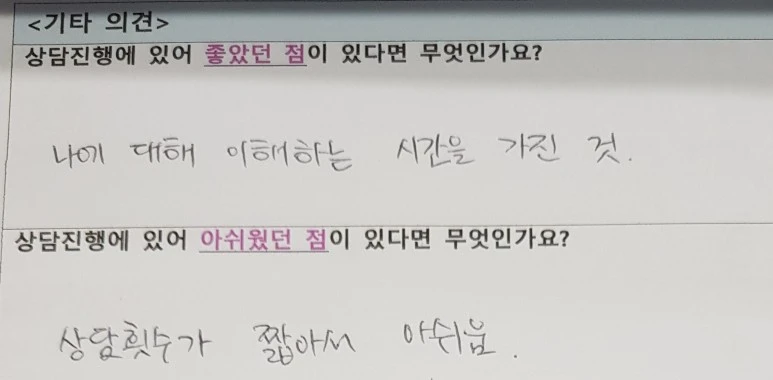 <기타 의견>
상담진행에 있어 좋았던 점이 있다면 무엇인가요?
나에 대해 이해하는 시간을 가진 것.
상담진행에 있어 아쉬웠던 점이 있다면 무엇인가요?
상담횟수가 짧아서 아쉬움.